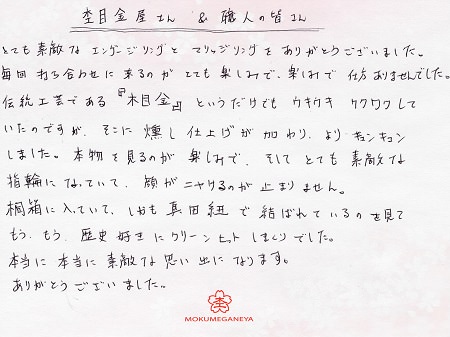 杢目金屋さん & 職人の皆さん
とても素敵なエンゲージリングとマリッジリングをありがとうございました。
毎回打ち合わせに来るのがとても楽しみで、楽しみで仕方ありませんでした。
伝統工芸である『木目金』というだけでもウキウキワクワクして
いたのですが、そこに燻し仕上げが加わり、よりキュンキュン
しました。本物を見るのが楽しみで、そしてとても素敵な
指輪になっていて、顔がニヤけるのが止まりません。
桐箱に入っていて、しかも真田紐で結ばれているのを見て
もう、もう、歴史好きにクリーンヒットしまくりでした。
本当に本当に素敵な思い出になります。
ありがとうございました。
MOKUMEGANEYA